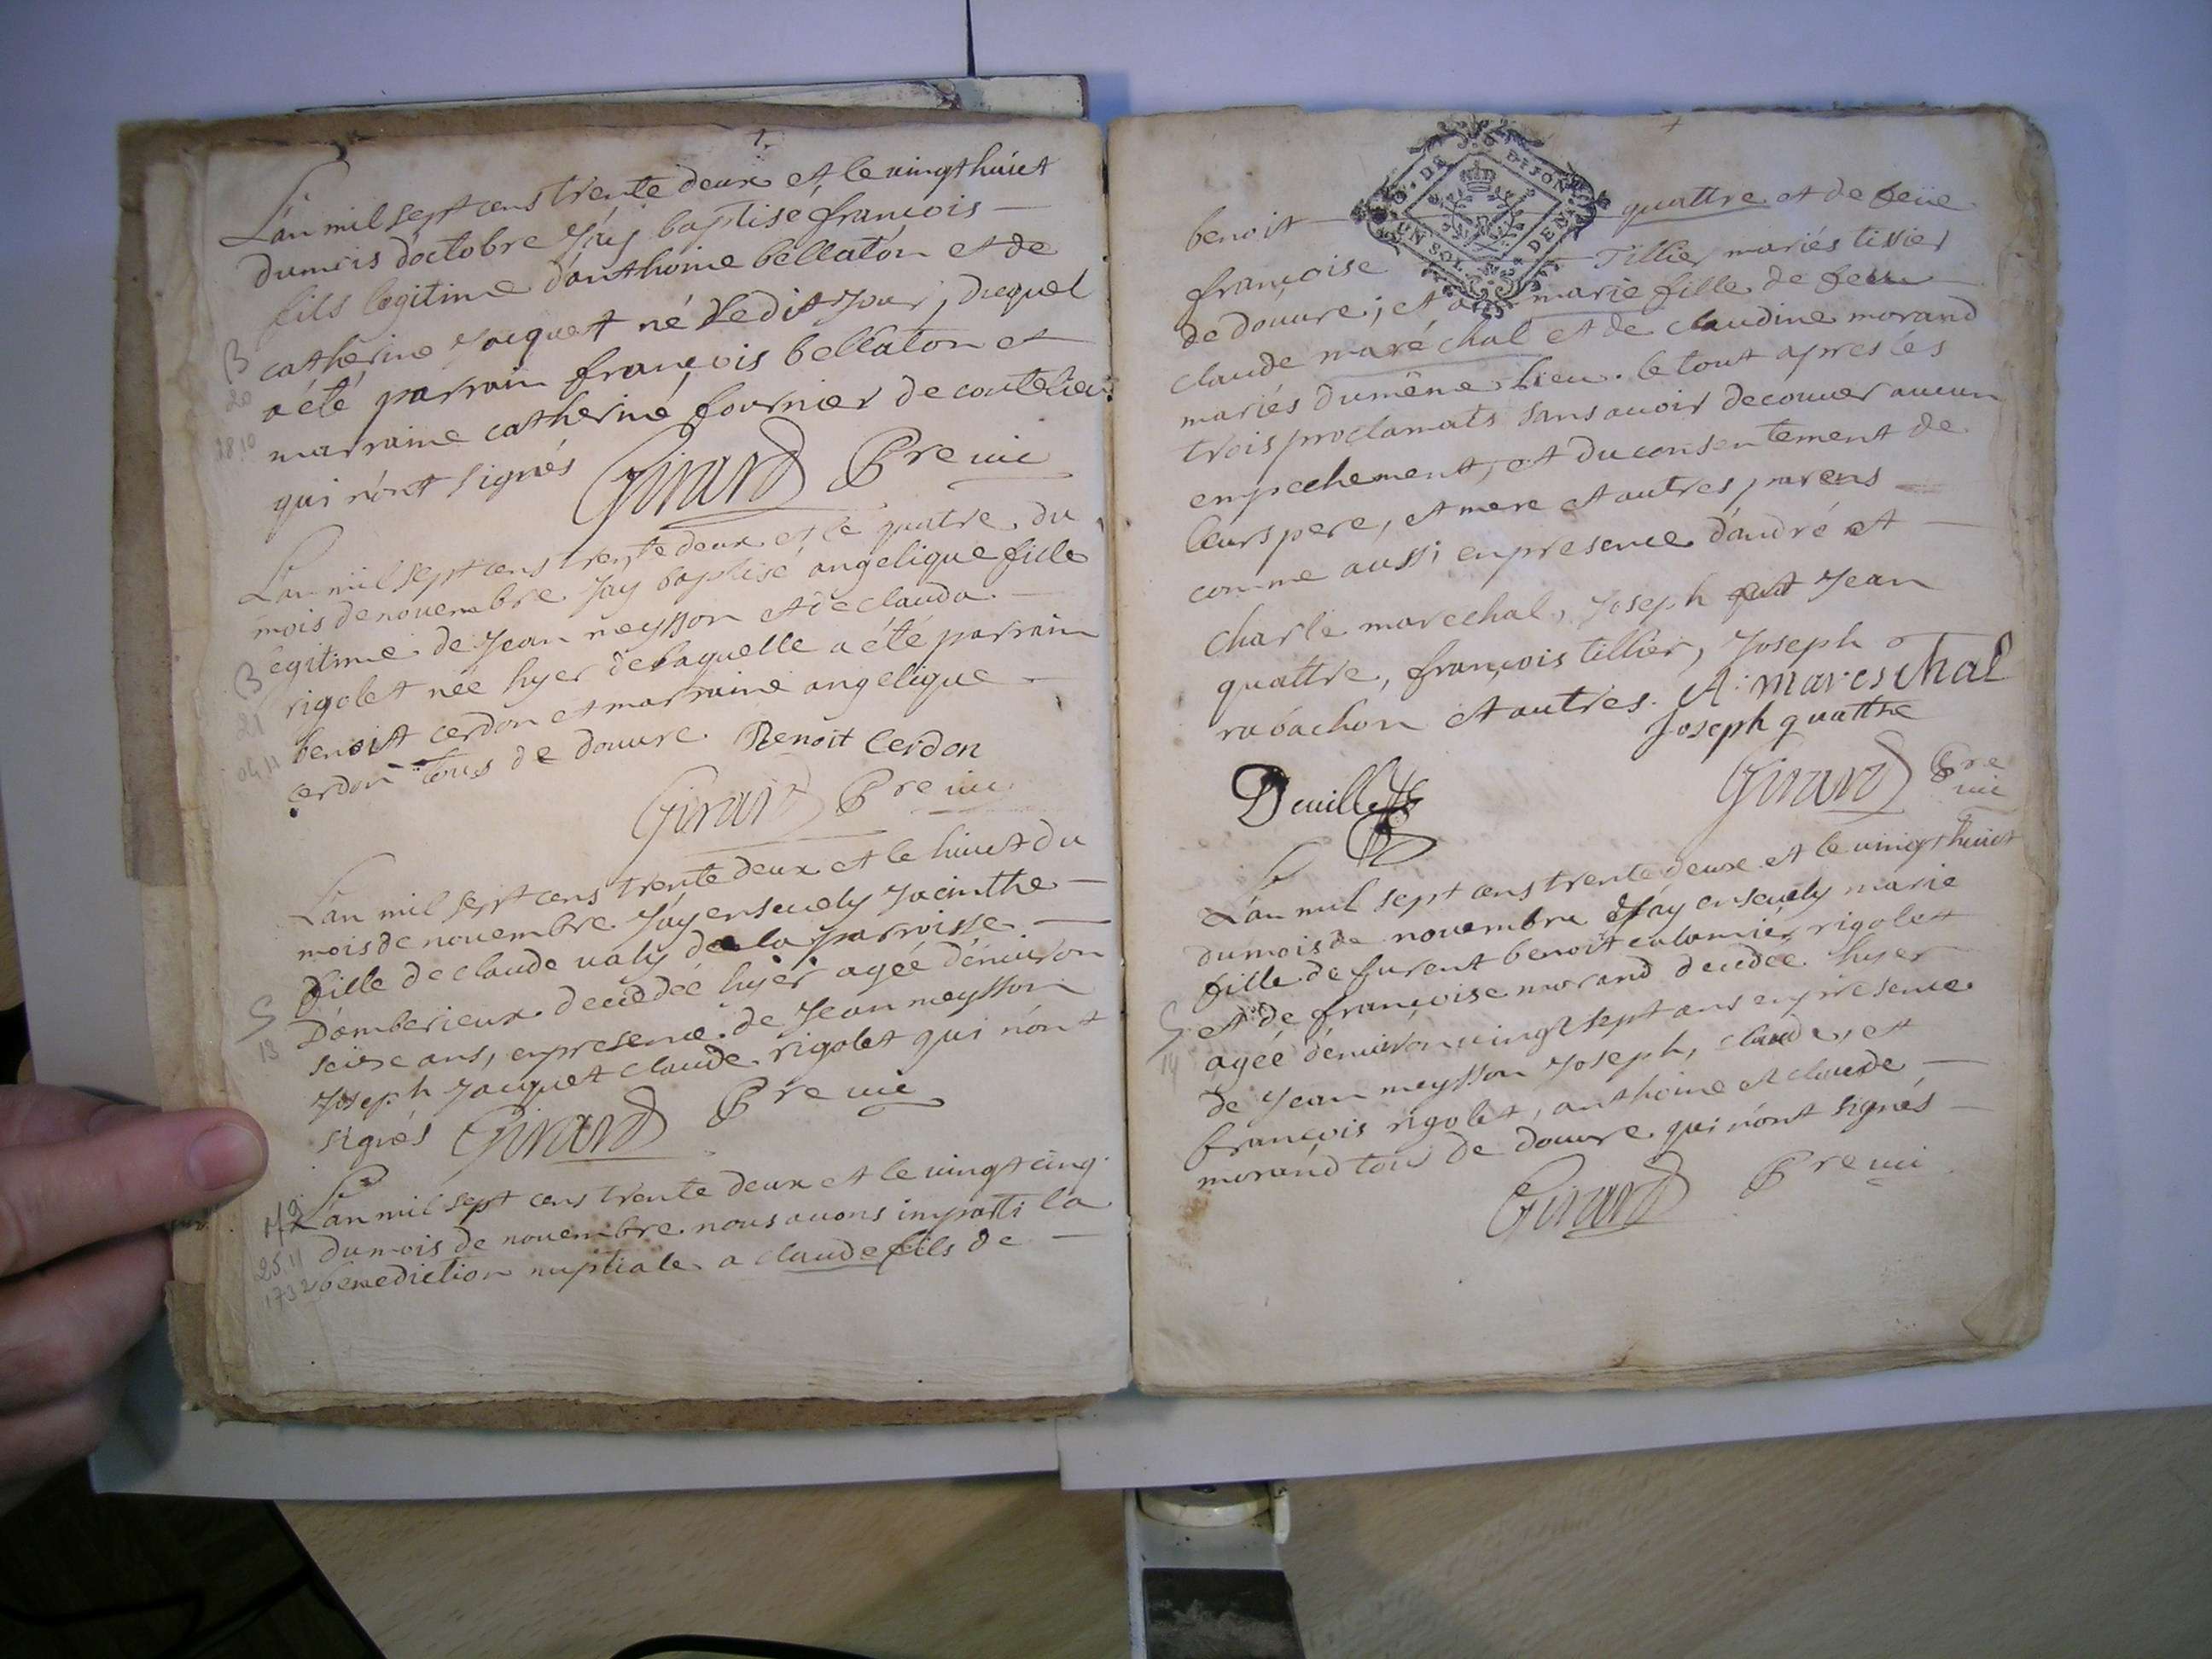 L'an mil sept cens trente deux et le vingt huict
du mois d'octobre J'ay baptisé françois
fils legitime d'anthoine bellaton et de
catherine Jacquet né Ledit Jour, duquel
a été parrain françois bellaton et
marraine catherine fournier de coutelieu
qui n'ont signés Girard Pre vic
L'an mil sept cens trente deux et le quatre du
mois de nouembre Jay baptisé angelique fille
legitime de Jean neysson et de clauda
rigolet née hyer de laquelle a été parrain
benoist cerdon et marraine angelique
cerdon tous de douure. Benoit Cerdon
Girard Pre vic
L'an mil sept cens trente deux et le huict du
mois de nouembre J'ay enseuely Jacinthe
fille de claude valy de la parroisse
D'amberieux decedée hyer agée d'enuiron
seize ans, en presence de Jean meysson
Joseph Jacquet claude rigolet qui n'ont
signés Girard Pre vic
L'an mil sept cens trente deux et le vingt cinq
du mois de nouembre nous auons imparti la
benediction nuptiale a claude fils de
B
20
28 10
B
21
04 11
S
13
M 9
25.11
1732
G. DE DIJON
UN SOL DEN.
benoit quattre et de feüe
françoise Tillier mariés tissier
de douure; et a marie fille de feu
claude maréchal et de claudine morand
mariés du même lieu. le tout apres les
trois proclamats sans auoir decouuer aucun
empechement, et du consentement de
leurs pere, et mere et autres parens
comme aussi en presence d'andré et
charle marechal, Joseph et Jean
quattre, françois tillier, Joseph
rabachon et autres. A. mareschal
Joseph quattre
Deuillette Girard Pre vic
L'an mil sept cens trente deux et le vingt huict
du mois de nouembre J'ay enseuely marie
fille de furent benoit colomier rigolet
et de françoise morand decedée hyer
agée d'enuiron vingt sept ans en presence
de Jean meysson Joseph, claude, et
françois rigolet, anthoine et claude
morand tous de douure qui n'ont signés
Girard Pre vic
S
14